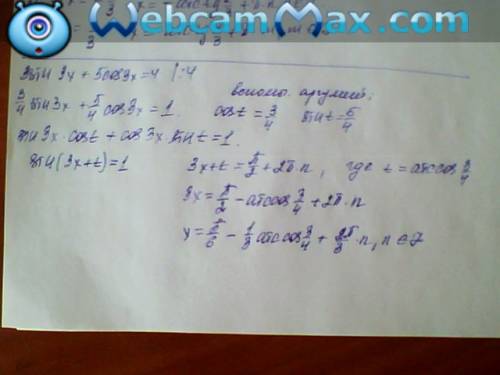 WebcamMax.com
3sin 3x + 5cos 3x = 4 | :4
3/4 sin 3x + 5/4 cos 3x = 1. вспом. аргумент:
cos t = 3/4 sin t = 5/4
sin 3x · cos t + cos 3x · sin t = 1.
sin(3x+t) = 1 3x+t = π/2 + 2π·n, где t = arccos 3/4
3x = π/2 − arccos 3/4 + 2π·n
x = π/6 − 1/3 arccos 3/4 + 2π/3 · n, n ∈ Z